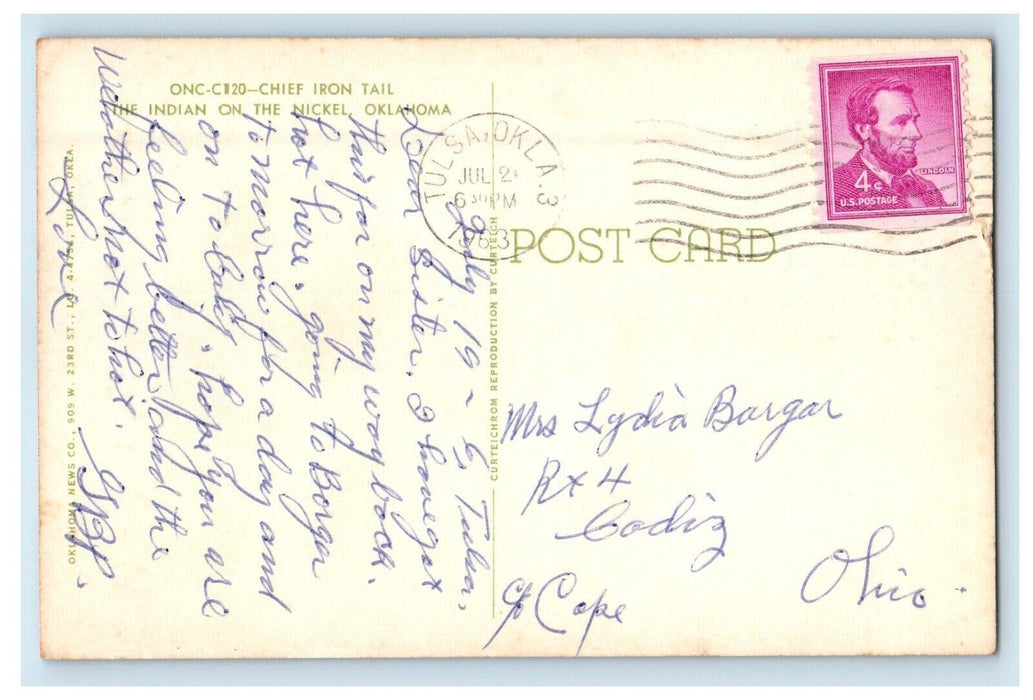 ONC-C1120—CHIEF IRON TAIL
THE INDIAN ON THE NICKEL, OKLAHOMA
July 19 - 6, Tulsa,
Dear Sister, I have got
this far on my way back.
hot here. going to Borger
tomorrow for a day and
on to Caly. hope you are
feeling better and the
weather not to hot.
Love
OKLAHOMA NEWS CO., 909 W. 23RD ST., TULSA, OKLA.
CURTEICHROM REPRODUCTION BY CURTEICH
TULSA, OKLA. 3
JUL 2
6 PM
1963
4¢
LINCOLN
U.S. POSTAGE
POST CARD
Mrs Lydia Bargar
Rx 4
Cadiz
Ohio
c/o Cope